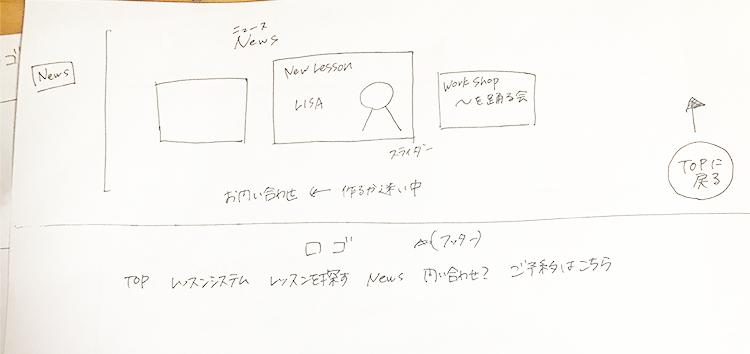 ゴ
News
ニュース
News
New Lesson
LISA
Work shop
〜を踊る会
スライダー
TOPに
戻る
お問い合わせ ← 作るか迷い中
ロゴ (フッター)
TOP レッスンシステム レッスンを探す News 問い合わせ? ご予約はこちら